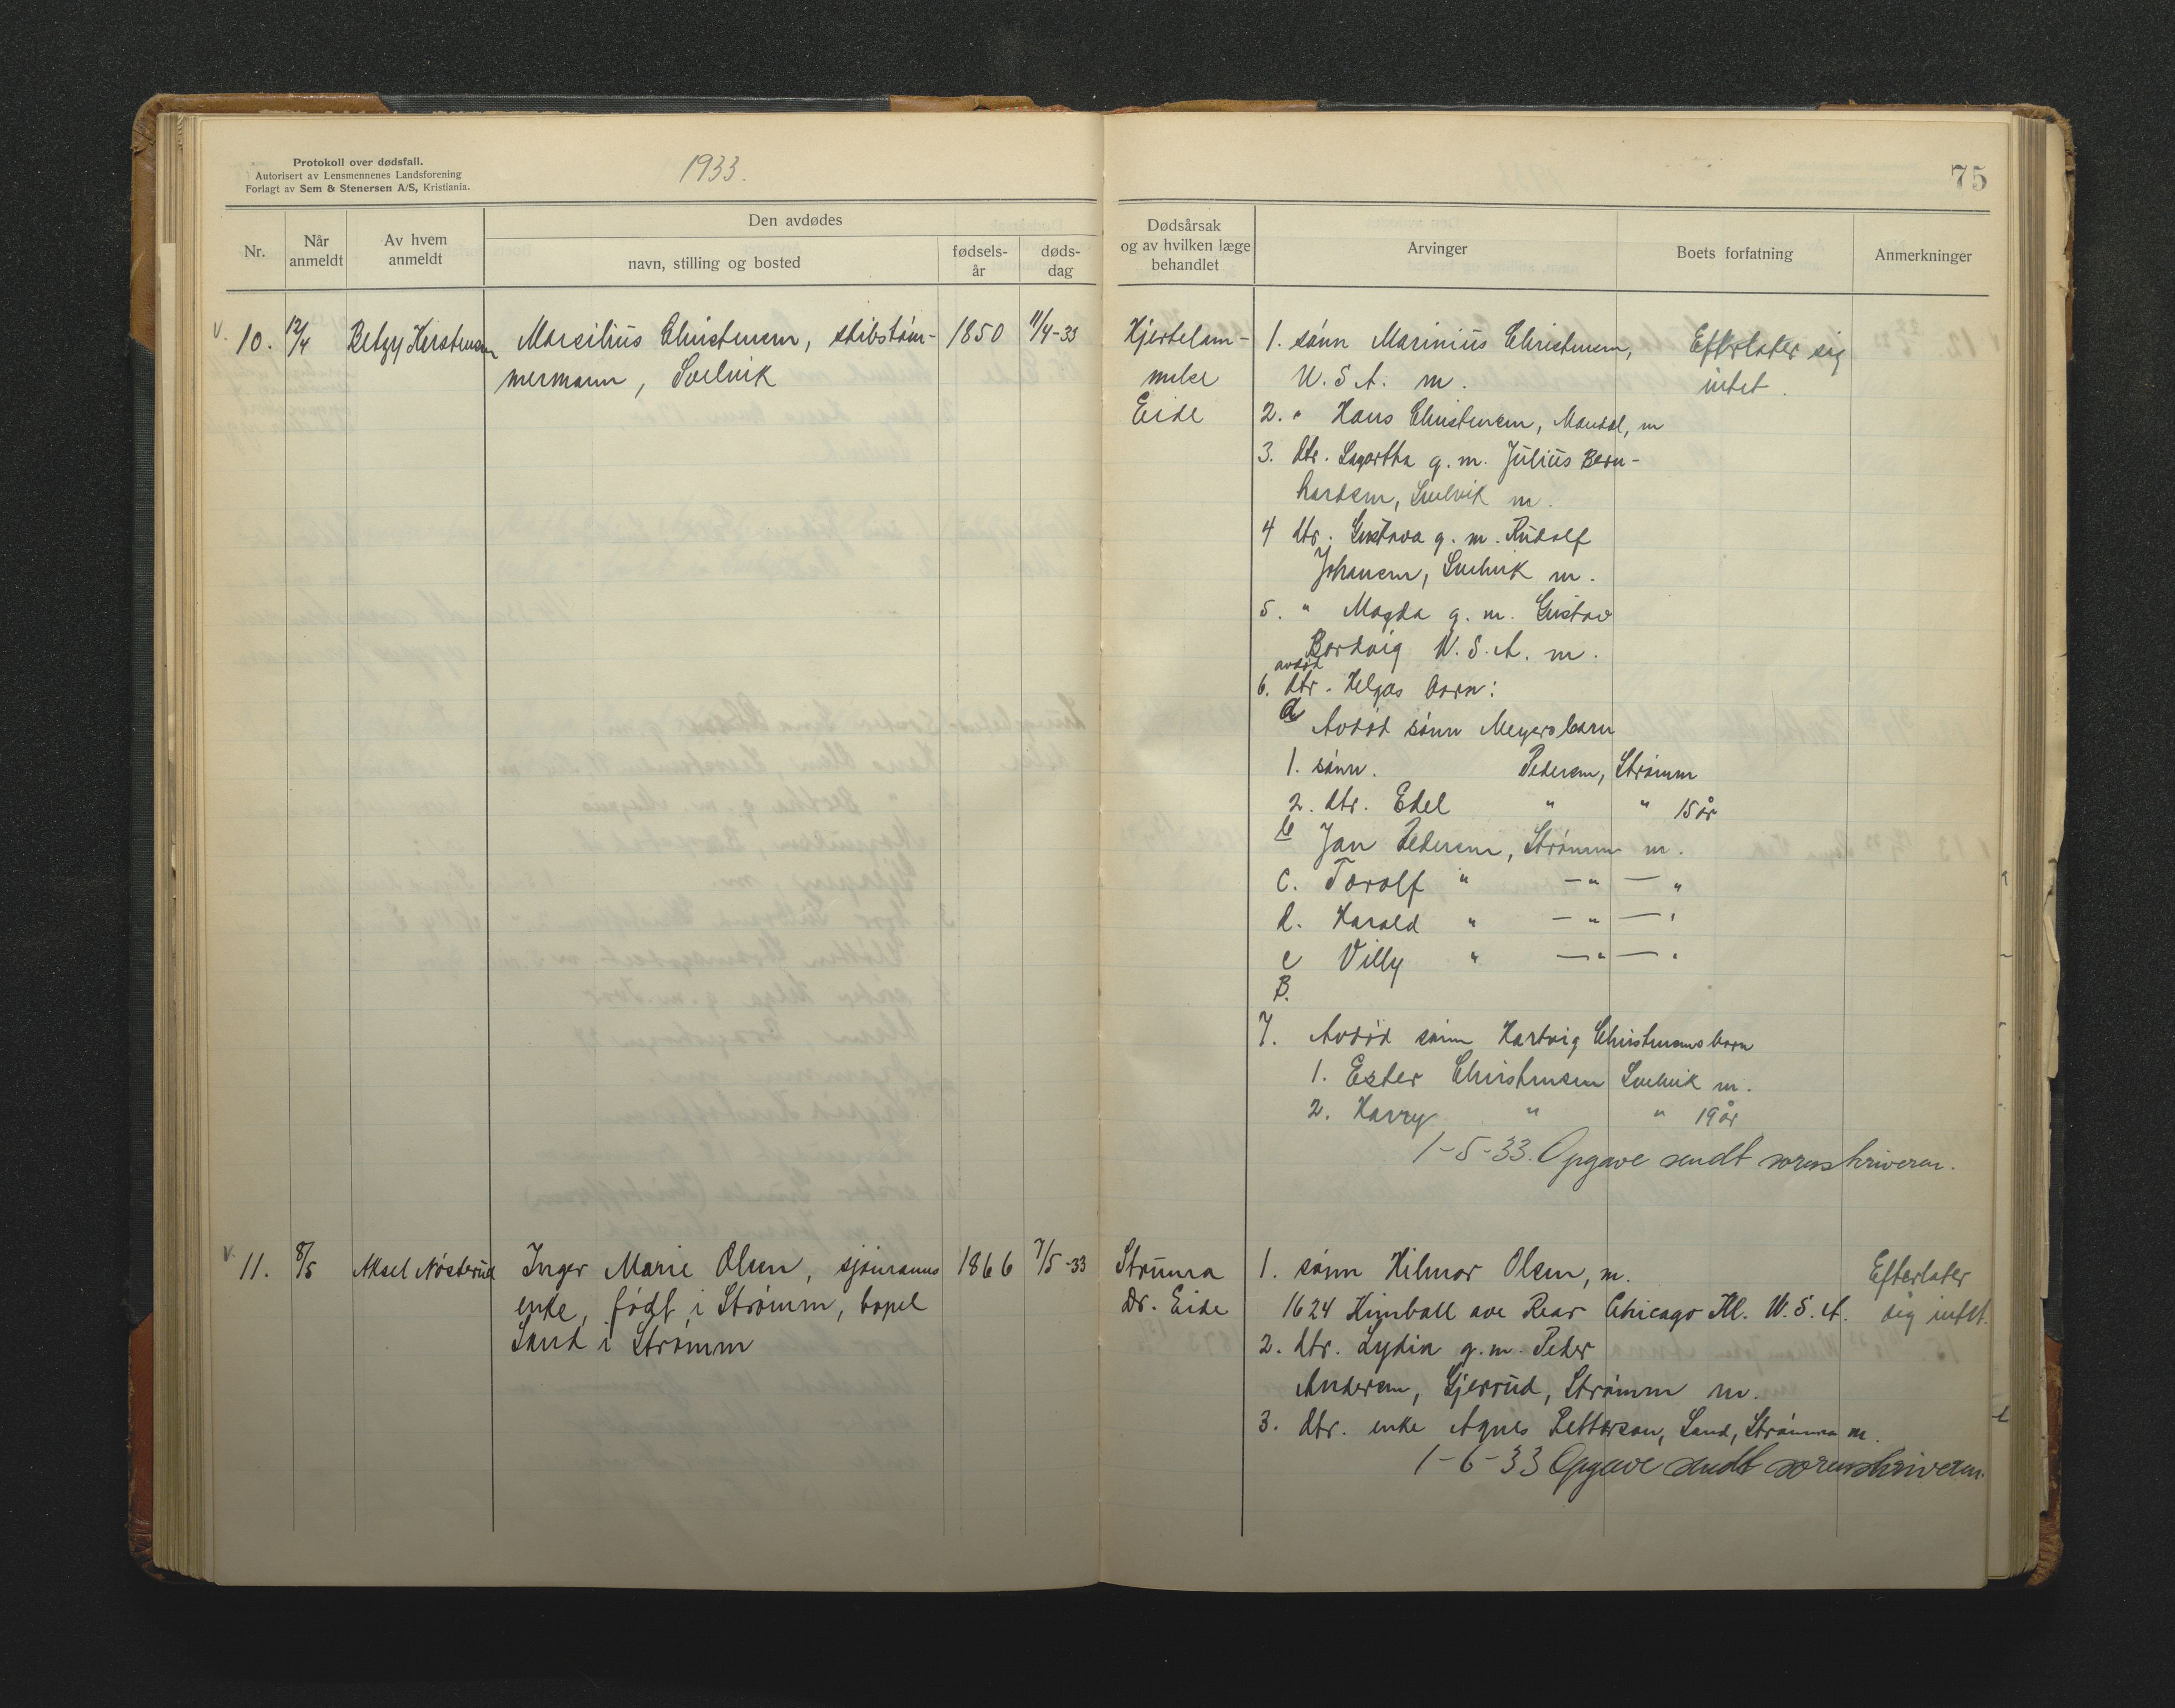 Protokoll over dødsfall.
Autorisert av Lensmennenes Landsforening
Forlagt av Sem & Stenersen A/S, Kristiania.
1933.
75
Nr.
Når anmeldt
Av hvem anmeldt
Den avdødes
navn, stilling og bosted
fødsels-år
døds-dag
Dødsårsak og av hvilken læge behandlet
Arvinger
Boets forfatning
Anmerkninger
v. 10. 12/4 Betzy Kerstensen Marsilius Christensen, skibstøm- 1850 11/4-33
mermann, Svelvik
Hjertelam-
melse
Eide
1. sønn Marinius Christensen,
U.S.A. m.
2. " Hans Christensen, Mandal, m
3. dtr. Lagertha g.m. Julius Bern-
hardsen, Svelvik m.
4 dtr. Gustava g.m. Rudolf
Johansen, Svelvik m.
5. " Magda g.m. Gustav
Bordvig U.S.A. m.
avdød
6. dtr. Helgas barn:
a Avdød sønn Meyers barn
1. sønn. Pedersen, Strømm
2. dtr. Edel " " 15 år
b Jan Pedersen, Strømm m.
c. Torolf " — " — "
d. Harald " — " — "
e Villy " — " — "
B.
7. Avdød sønn Hartvig Christensens barn
1. Ester Christensen Svelvik m.
2. Harry " " 19 år
1-5-33. Opgave sendt sorenskriveren.
Efterlater sig
intet.
v. 11. 8/5 Aksel Nøsterud Inger Marie Olsen, sjømanns 1866 7/5-33
enke, født i Strømm, bopel
Sand i Strømm
Struma
Dr. Eide
1. sønn Hilmar Olsen, m.
1624 Kimball ave Rear Chicago Ill. U.S.A.
2. dtr. Lydia g.m. Peder
Andersen, Gjerrud, Strømm m.
3. dtr. enke Agnes Petterson, Sand, Strømm m.
1-6-33 Opgave sendt sorenskriveren.
Efterlater
sig intet.